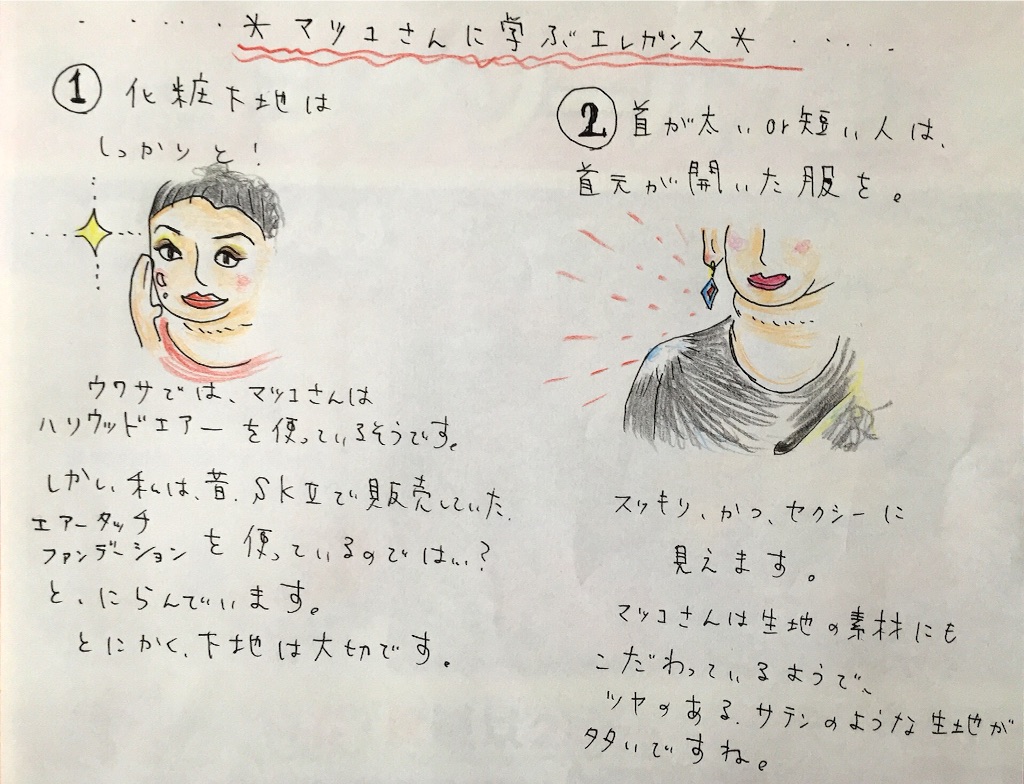 * マツコさんに学ぶエレガンス *
① 化粧下地は
しっかりと!
ウワサでは、マツコさんは
ハリウッドエアーを使っているそうです。
しかし、私は、昔、SKⅡで販売していた、
エアータッチ
ファンデーションを使っているのではい?
と、にらんでいます。
とにかく、下地は大切です。
② 首が太いor短い人は、
首元が開いた服を。
スッキリ、かつ、セクシーに
見えます。
マツコさんは生地の素材にも
こだわっているようで、
ツヤのある、サテンのような生地が
多いですね。